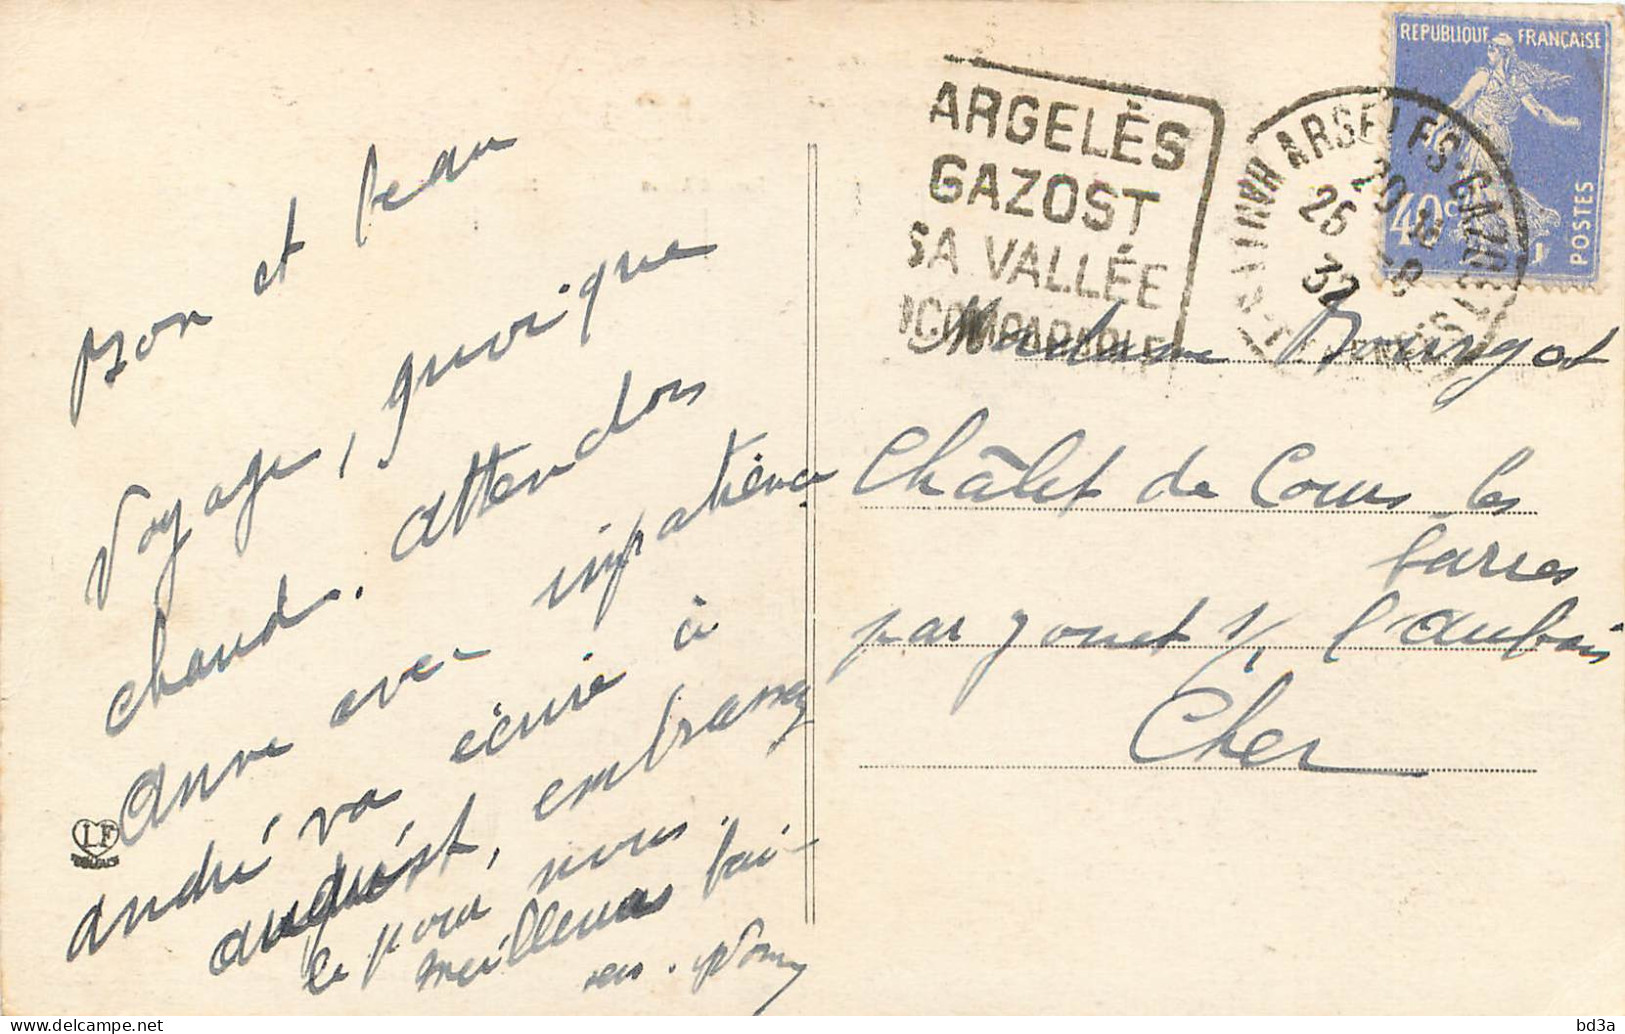 Bon et beau
voyage, quoique
chaud. attendons
Anne avec impatience
André va écrire à
august, embrassez
le pour nous.
meilleurs bai-
ers.
LF
ARGELÈS
GAZOST
SA VALLÉE
INCOMPARABLE
ARGELES-GAZOST
20 H
25 -8
32
REPUBLIQUE FRANÇAISE
40 c
POSTES
Madame Bourgot
Châlet de Cours les
barres
par Jouet s/ l'Aubois
Cher
bd3a
delcampe.net